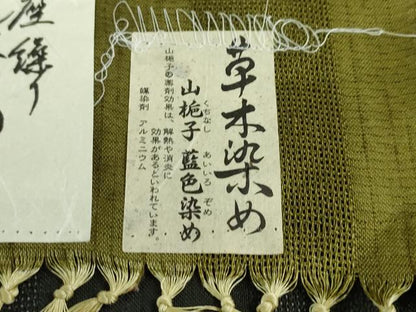 座繰り
草木染め
くちなし あいいろ ぞめ
山梔子 藍色染め
山梔子の薬剤効果は、解熱や消炎に
効果があるといわれています。
媒染剤 アルミニウム